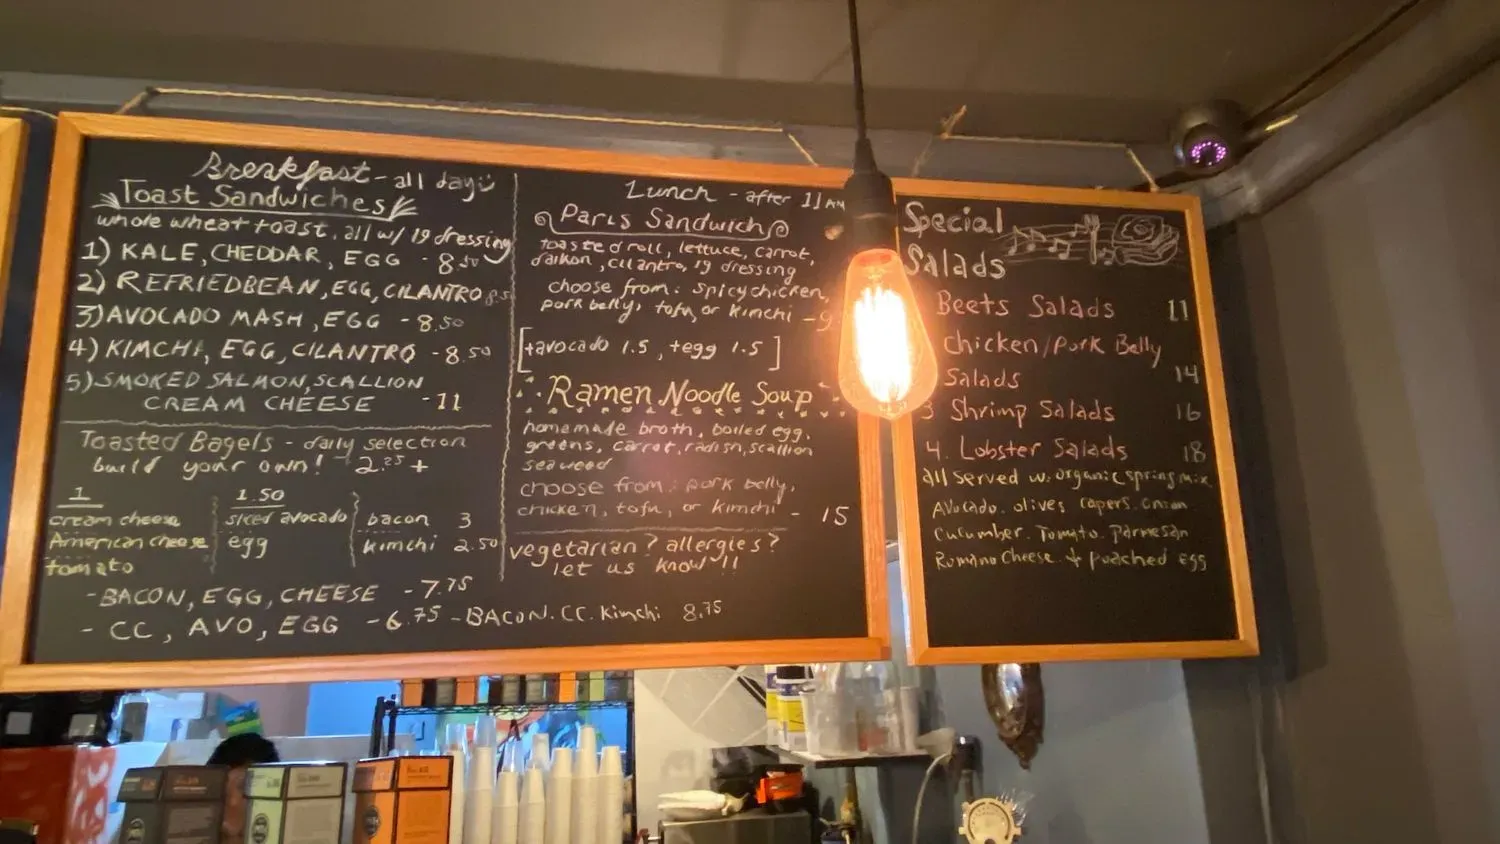 Breakfast - all day
Toast Sandwiches
whole wheat toast, all w/ 19 dressing
1) KALE, CHEDDAR, EGG - 8.50
2) REFRIEDBEAN, EGG, CILANTRO 8.5
3) AVOCADO MASH, EGG - 8.50
4) KIMCHI, EGG, CILANTRO - 8.50
5) SMOKED SALMON, SCALLION
CREAM CHEESE - 11
Toasted Bagels - daily selection
build your own! 2.25 +
1
cream cheese
American cheese
tomato
1.50
sliced avocado
egg
bacon 3
kimchi 2.50
- BACON, EGG, CHEESE - 7.75
- CC, AVO, EGG - 6.75 - BACON. CC. Kimchi 8.75
Lunch - after 11 AM
Paris Sandwich
toasted roll, lettuce, carrot,
daikon, cilantro, 19 dressing
choose from: spicy chicken,
pork belly, tofu, or kimchi - 9
[+avocado 1.5, +egg 1.5]
Ramen Noodle Soup
homemade broth, boiled egg,
greens, carrot, radish, scallion
seaweed
choose from: pork belly,
chicken, tofu, or kimchi - 15
vegetarian? allergies?
let us know!!
Special
Salads
Beets Salads 11
chicken/Pork Belly
Salads 14
3 Shrimp Salads 16
4. Lobster Salads 18
all served w. organic spring mix
Avocado. olives capers. onion
cucumber. Tomato. parmesan
Romano cheese. & poached egg